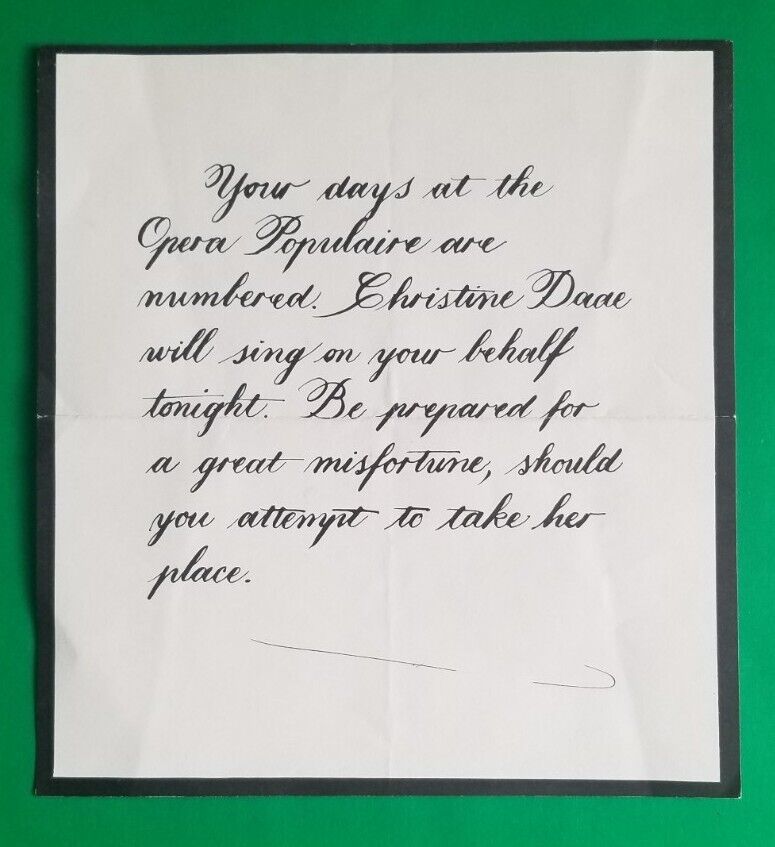 Your days at the
Opera Populaire are
numbered. Christine Daae
will sing on your behalf
tonight. Be prepared for
a great misfortune, should
you attempt to take her
place.